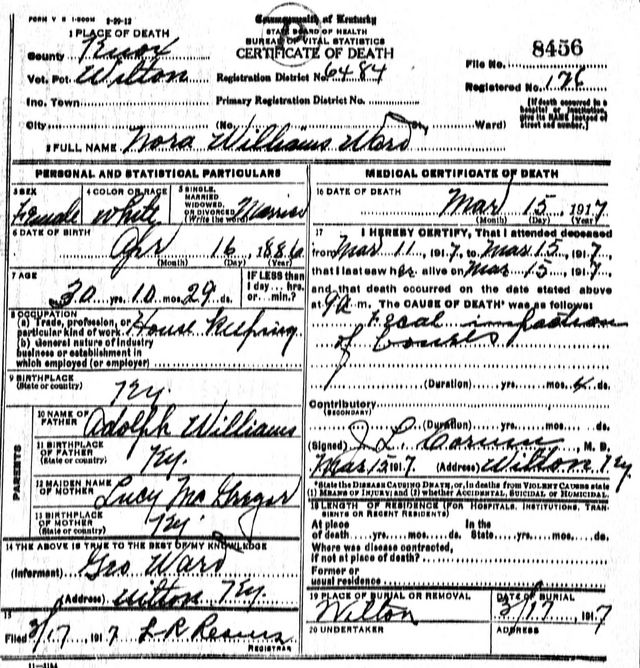 FORM V S 1-500M 8-29-12
Commonwealth of Kentucky
STATE BOARD OF HEALTH
BUREAU OF VITAL STATISTICS
CERTIFICATE OF DEATH
1 PLACE OF DEATH
County Knox
Vot. Pct. Wilton
Registration District No. 6484
File No. 8456
Registered No. 176
Inc. Town
Primary Registration District No.
City (No. Ward)
[If death occurred in a hospital or institution, give its NAME instead of street and number.]
2 FULL NAME Nora Williams Ward
PERSONAL AND STATISTICAL PARTICULARS
3 SEX Female
4 COLOR OR RACE White
5 SINGLE, MARRIED WIDOWED, OR DIVORCED (Write the word) Married
6 DATE OF BIRTH
Apr 16, 1886
(Month) (Day) (Year)
7 AGE
30 yrs. 10 mos. 29 ds.
IF LESS than 1 day... hrs. or... min.?
8 OCCUPATION
(a) Trade, profession, or particular kind of work House Keeping
(b) General nature of industry business or establishment in which employed (or employer)
9 BIRTHPLACE (State or country) Ky.
PARENTS
10 NAME OF FATHER Adolph Williams
11 BIRTHPLACE OF FATHER (State or country) Ky.
12 MAIDEN NAME OF MOTHER Lucy McGregor
13 BIRTHPLACE OF MOTHER (State or country) Ky.
14 THE ABOVE IS TRUE TO THE BEST OF MY KNOWLEDGE
(Informant) Geo Ward
(Address) Wilton Ky
15
Filed 3/17, 1917
REGISTRAR
11-3184
MEDICAL CERTIFICATE OF DEATH
16 DATE OF DEATH
Mar 15, 1917
(Month) (Day) (Year)
17 I HEREBY CERTIFY, That I attended deceased
from Mar 11, 1917, to Mar 15, 1917,
that I last saw her alive on Mar 15, 1917,
and that death occurred on the date stated above
at 9 a m. The CAUSE OF DEATH* was as follows:
Fecal impaction
of bowels
(Duration) yrs. mos. 4 ds.
Contributory
(SECONDARY)
(Duration) yrs. mos. ds.
(Signed) J. L. M. D.
Mar 15 1917. (Address) Wilton Ky
*State the DISEASE CAUSING DEATH, or, in deaths from VIOLENT CAUSES state
(1) MEANS OF INJURY; and (2) whether ACCIDENTAL, SUICIDAL or HOMICIDAL.
18 LENGTH OF RESIDENCE (FOR HOSPITALS, INSTITUTIONS, TRANSIENTS OR RECENT RESIDENTS)
At place of death yrs. mos. ds. In the State yrs. mos. ds.
Where was disease contracted, if not at place of death?
Former or usual residence
19 PLACE OF BURIAL OR REMOVAL
Wilton
DATE OF BURIAL
3/17, 1917
20 UNDERTAKER
ADDRESS